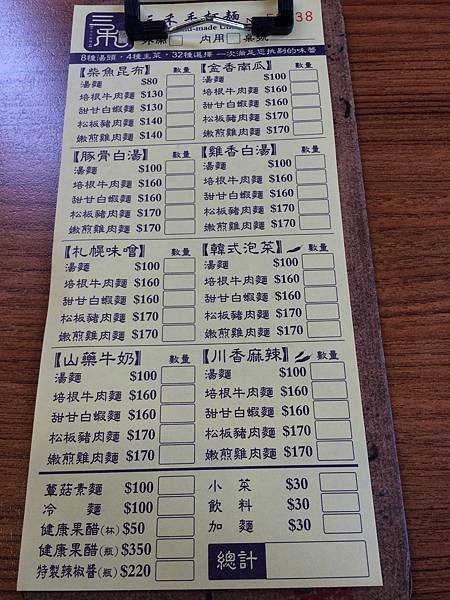 三禾手打麵
外帶 內用 桌號
8種湯頭，4種主菜，32種選擇 一次滿足您挑剔的味蕾
【柴魚昆布】 數量
湯麵 $80
培根牛肉麵 $130
甜甘白蝦麵 $130
松板豬肉麵 $140
嫩煎雞肉麵 $140
【金香南瓜】 數量
湯麵 $100
培根牛肉麵 $160
甜甘白蝦麵 $160
松板豬肉麵 $170
嫩煎雞肉麵 $170
【豚骨白湯】 數量
湯麵 $100
培根牛肉麵 $160
甜甘白蝦麵 $160
松板豬肉麵 $170
嫩煎雞肉麵 $170
【雞香白湯】 數量
湯麵 $100
培根牛肉麵 $160
甜甘白蝦麵 $160
松板豬肉麵 $170
嫩煎雞肉麵 $170
【札幌味噌】 數量
湯麵 $100
培根牛肉麵 $160
甜甘白蝦麵 $160
松板豬肉麵 $170
嫩煎雞肉麵 $170
【韓式泡菜】 數量
湯麵 $100
培根牛肉麵 $160
甜甘白蝦麵 $160
松板豬肉麵 $170
嫩煎雞肉麵 $170
【山藥牛奶】 數量
湯麵 $100
培根牛肉麵 $160
甜甘白蝦麵 $160
松板豬肉麵 $170
嫩煎雞肉麵 $170
【川香麻辣】 數量
湯麵 $100
培根牛肉麵 $160
甜甘白蝦麵 $160
松板豬肉麵 $170
嫩煎雞肉麵 $170
蕈菇素麵 $100
冷麵 $100
健康果醋(杯) $50
健康果醋(瓶) $350
特製辣椒醬(瓶) $220
小菜 $30
飲料 $30
加麵 $30
總計